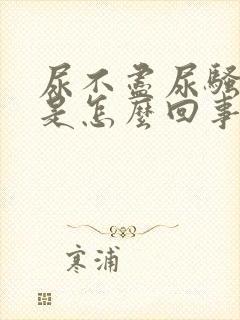 尿不盡尿騷
是怎麼回事
寒浦